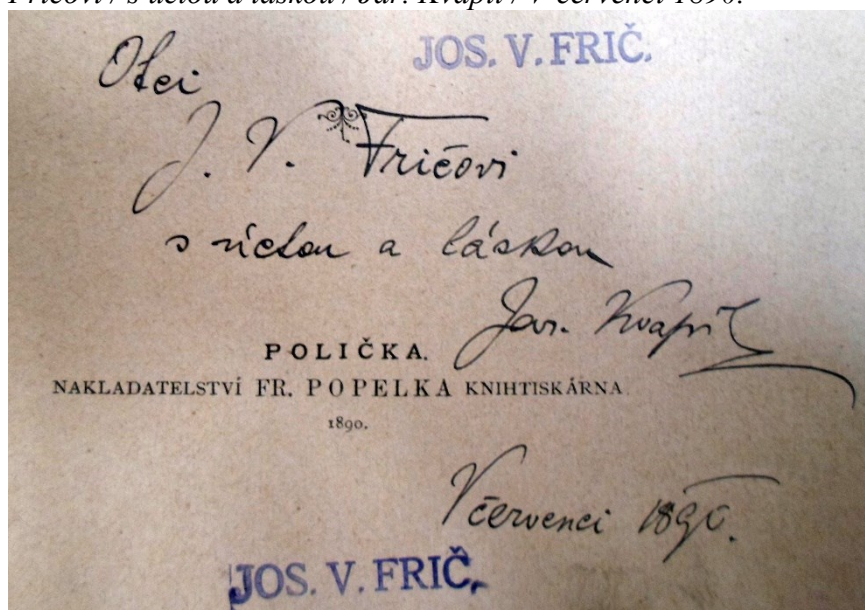 Fričovi / s úctou a láskou / Jar. Kvapil / V červenci 1890.
JOS. V. FRIČ.
Otci
J. V. Fričovi
s úctou a láskou
Jar. Kvapil
POLIČKA.
NAKLADATELSTVÍ FR. POPELKA KNIHTISKÁRNA
1890.
V červenci 1890.
JOS. V. FRIČ.